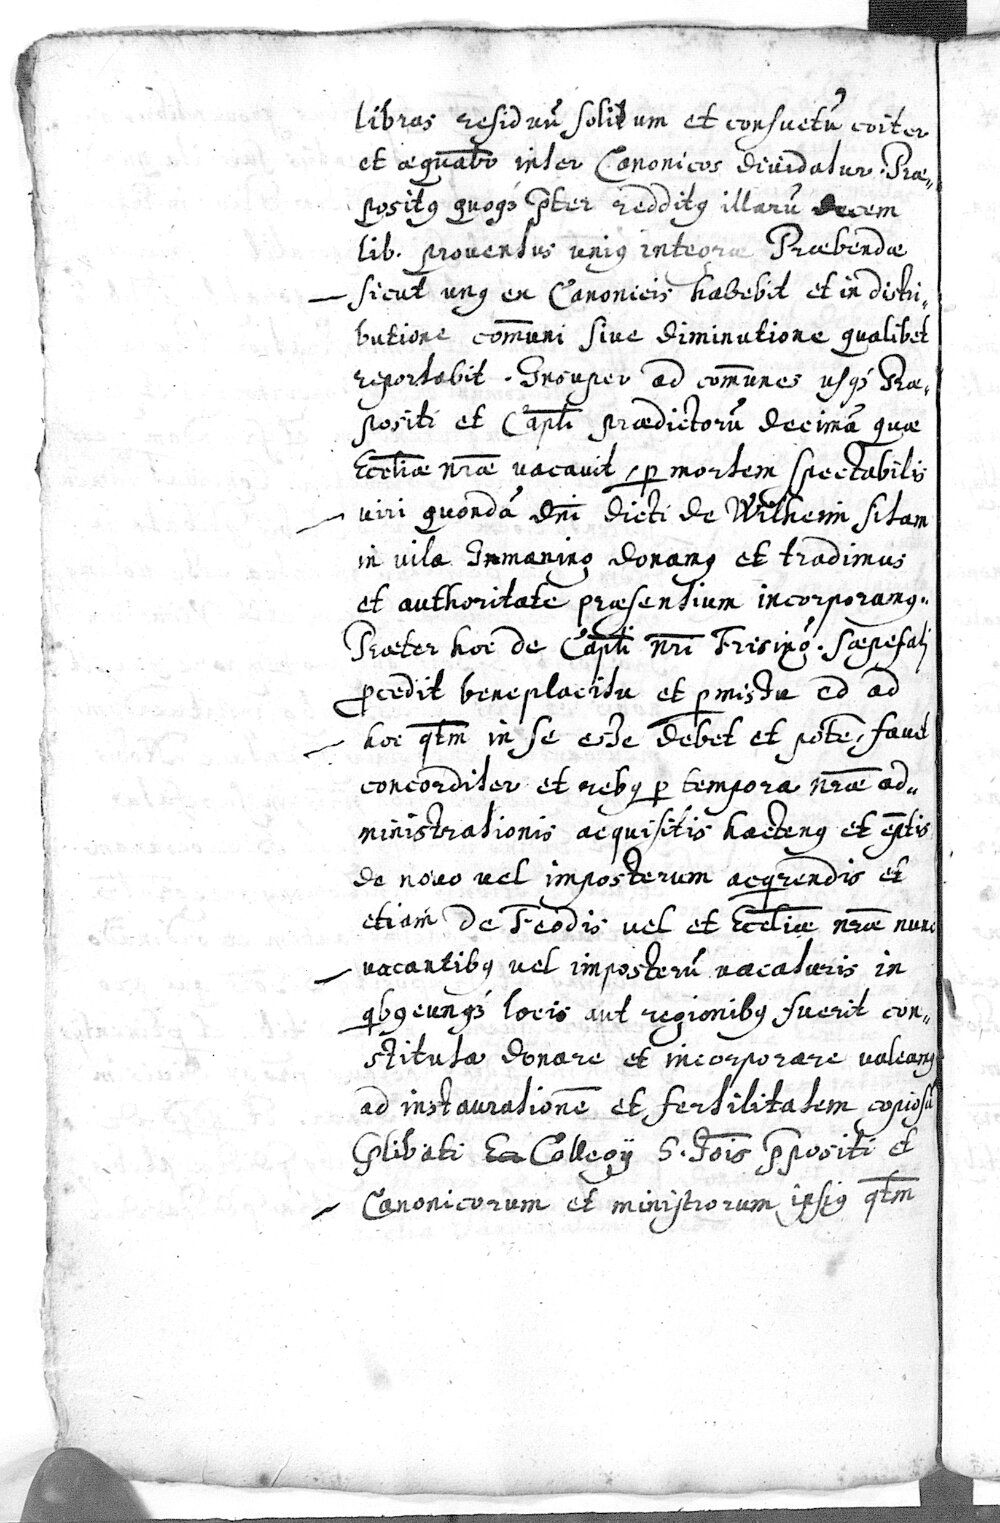 libras residuũ solitum et consuetũ coiter
et aeq̃uabr inter Canonicos diuidatur. Præ„
positꝯ quoqꝫ p̃ter redditꝯ illarũ decem
lib. prouentus uniꝯ integræ Præbendæ
sicut unꝯ ex Canonicis habebit et in distri„
butione com̃uni siue diminutione qualibet
reportabit. Insuper ad com̃unes usqꝫ Præ„
positi et Cap̃li prædictorũ decimã quæ
Eccl̃iæ nr̃æ vacauit, ꝑ mortem spectabilis
viri quondã dñi dicti de Wilhemi sitam
in vila Inmaning donamꝯ et tradimus
et authoritate præsentium incorporamꝯ„
Præter hoc de Cap̃li nr̃i Frising̃. sæpefati
ꝓcedit beneplacitu et ꝑmistu ad ad
hoc qt̃m in se este debet et põte, fauet
concorditer et rebꝯ ꝑ tempora nr̃æ ad„
ministrationis acquisitis hactenꝯ et em̃ptis
de novo vel imposterum acq̃rendis et
etiam de Feodis vel et Eccl̃iæ nr̃æ nunc
vacantibꝯ vel imposterũ vacaturis in
qbꝯcunqꝫ locis aut regionibꝯ fuerit con„
stituta donare et incorporare valeamꝯ
ad instaurationẽ et fertilitatem copiosã
p̃libati Collegij S. Jõis p̃positi et
Canonicorum et ministrorum ipsiꝯ qt̃m